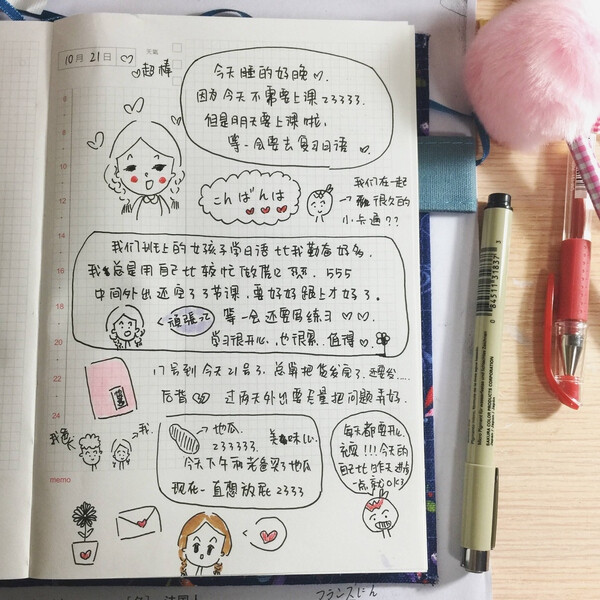 10月21日
天氣
超棒
今天睡的好晚
因为今天不需要上课23333.
但是明天要上课啦,
等一会要去复习日语
こんばんは
我们在一起
→ 很久的
小卡通??
我们班上的女孩子学日语 比我勤奋好多,
我总是用自己比较忙做借口 555
中间外出还空了3节课,要好好跟上才好了。
頑張って
等一会还要写练习
学习很开心,也很累,值得
17号到今天21号了.总算把货发完了.还要发.....
后背 过两天外出要尽量把问题弄好.
我爸
我.
→地瓜
233333.
美味心
今天下午雨爸爸买了地瓜
现在一直想放屁2333
每天都要开心
充实!!!今天的
自己比昨天进步
一点就OK了
8
10
12
14
16
18
20
22
24
memo
SAKURA COLOR PRODUCTS CORPORATION
フランスじん
法国人